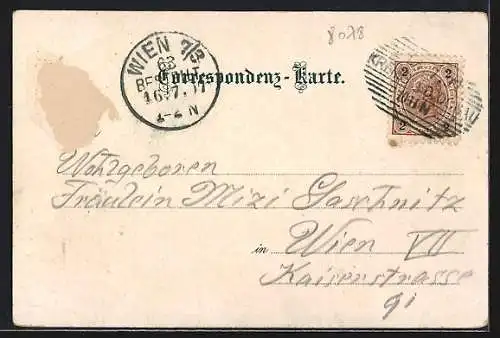 8078
WIEN 7/3
63
BESTELLT
16.7.01
1-2 N
Correspondenz-Karte.
2
2 2
Wohlgeboren
Fräulein Mizi Gaschnitz
in Wien VII
Kaiserstrasse
91